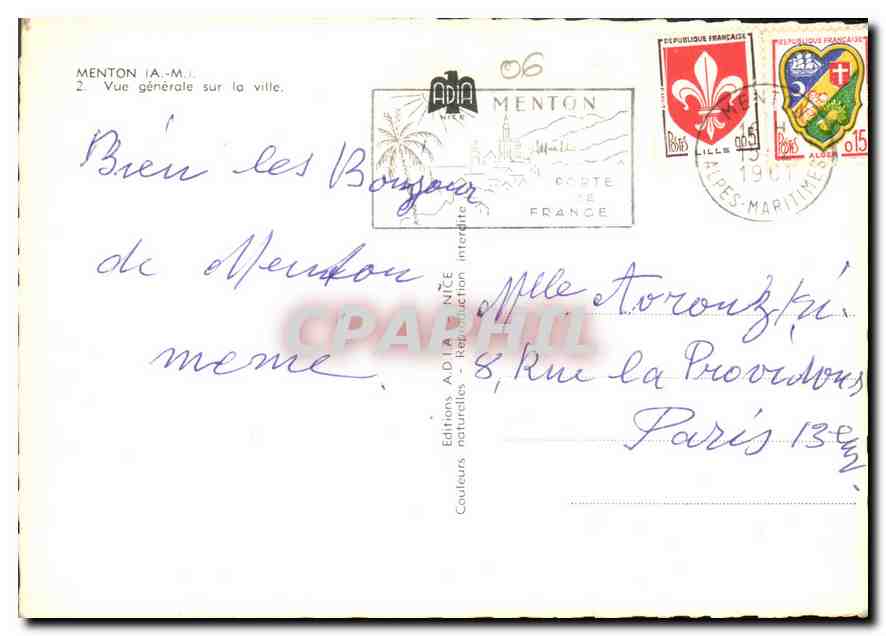 MENTON (A.-M.).
2. Vue générale sur la ville.
06
ADIA
NICE
MENTON
PORTE
DE
FRANCE
REPUBLIQUE FRANÇAISE
POSTES
LILLE 0,05
REPUBLIQUE FRANÇAISE
POSTES
ALGER 0,15
MENTON
1961
ALPES-MARITIMES
Bien les Bonjour
de Menton
mémé.
Editions A.D.I.A. NICE
Couleurs naturelles - Reproduction interdite
Mlle
8, Rue la Providons
Paris 13em.
CPAPHIL